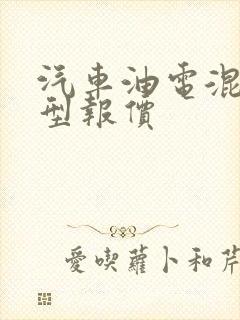 汽車油電混
型報價
愛喫蘿卜和芹